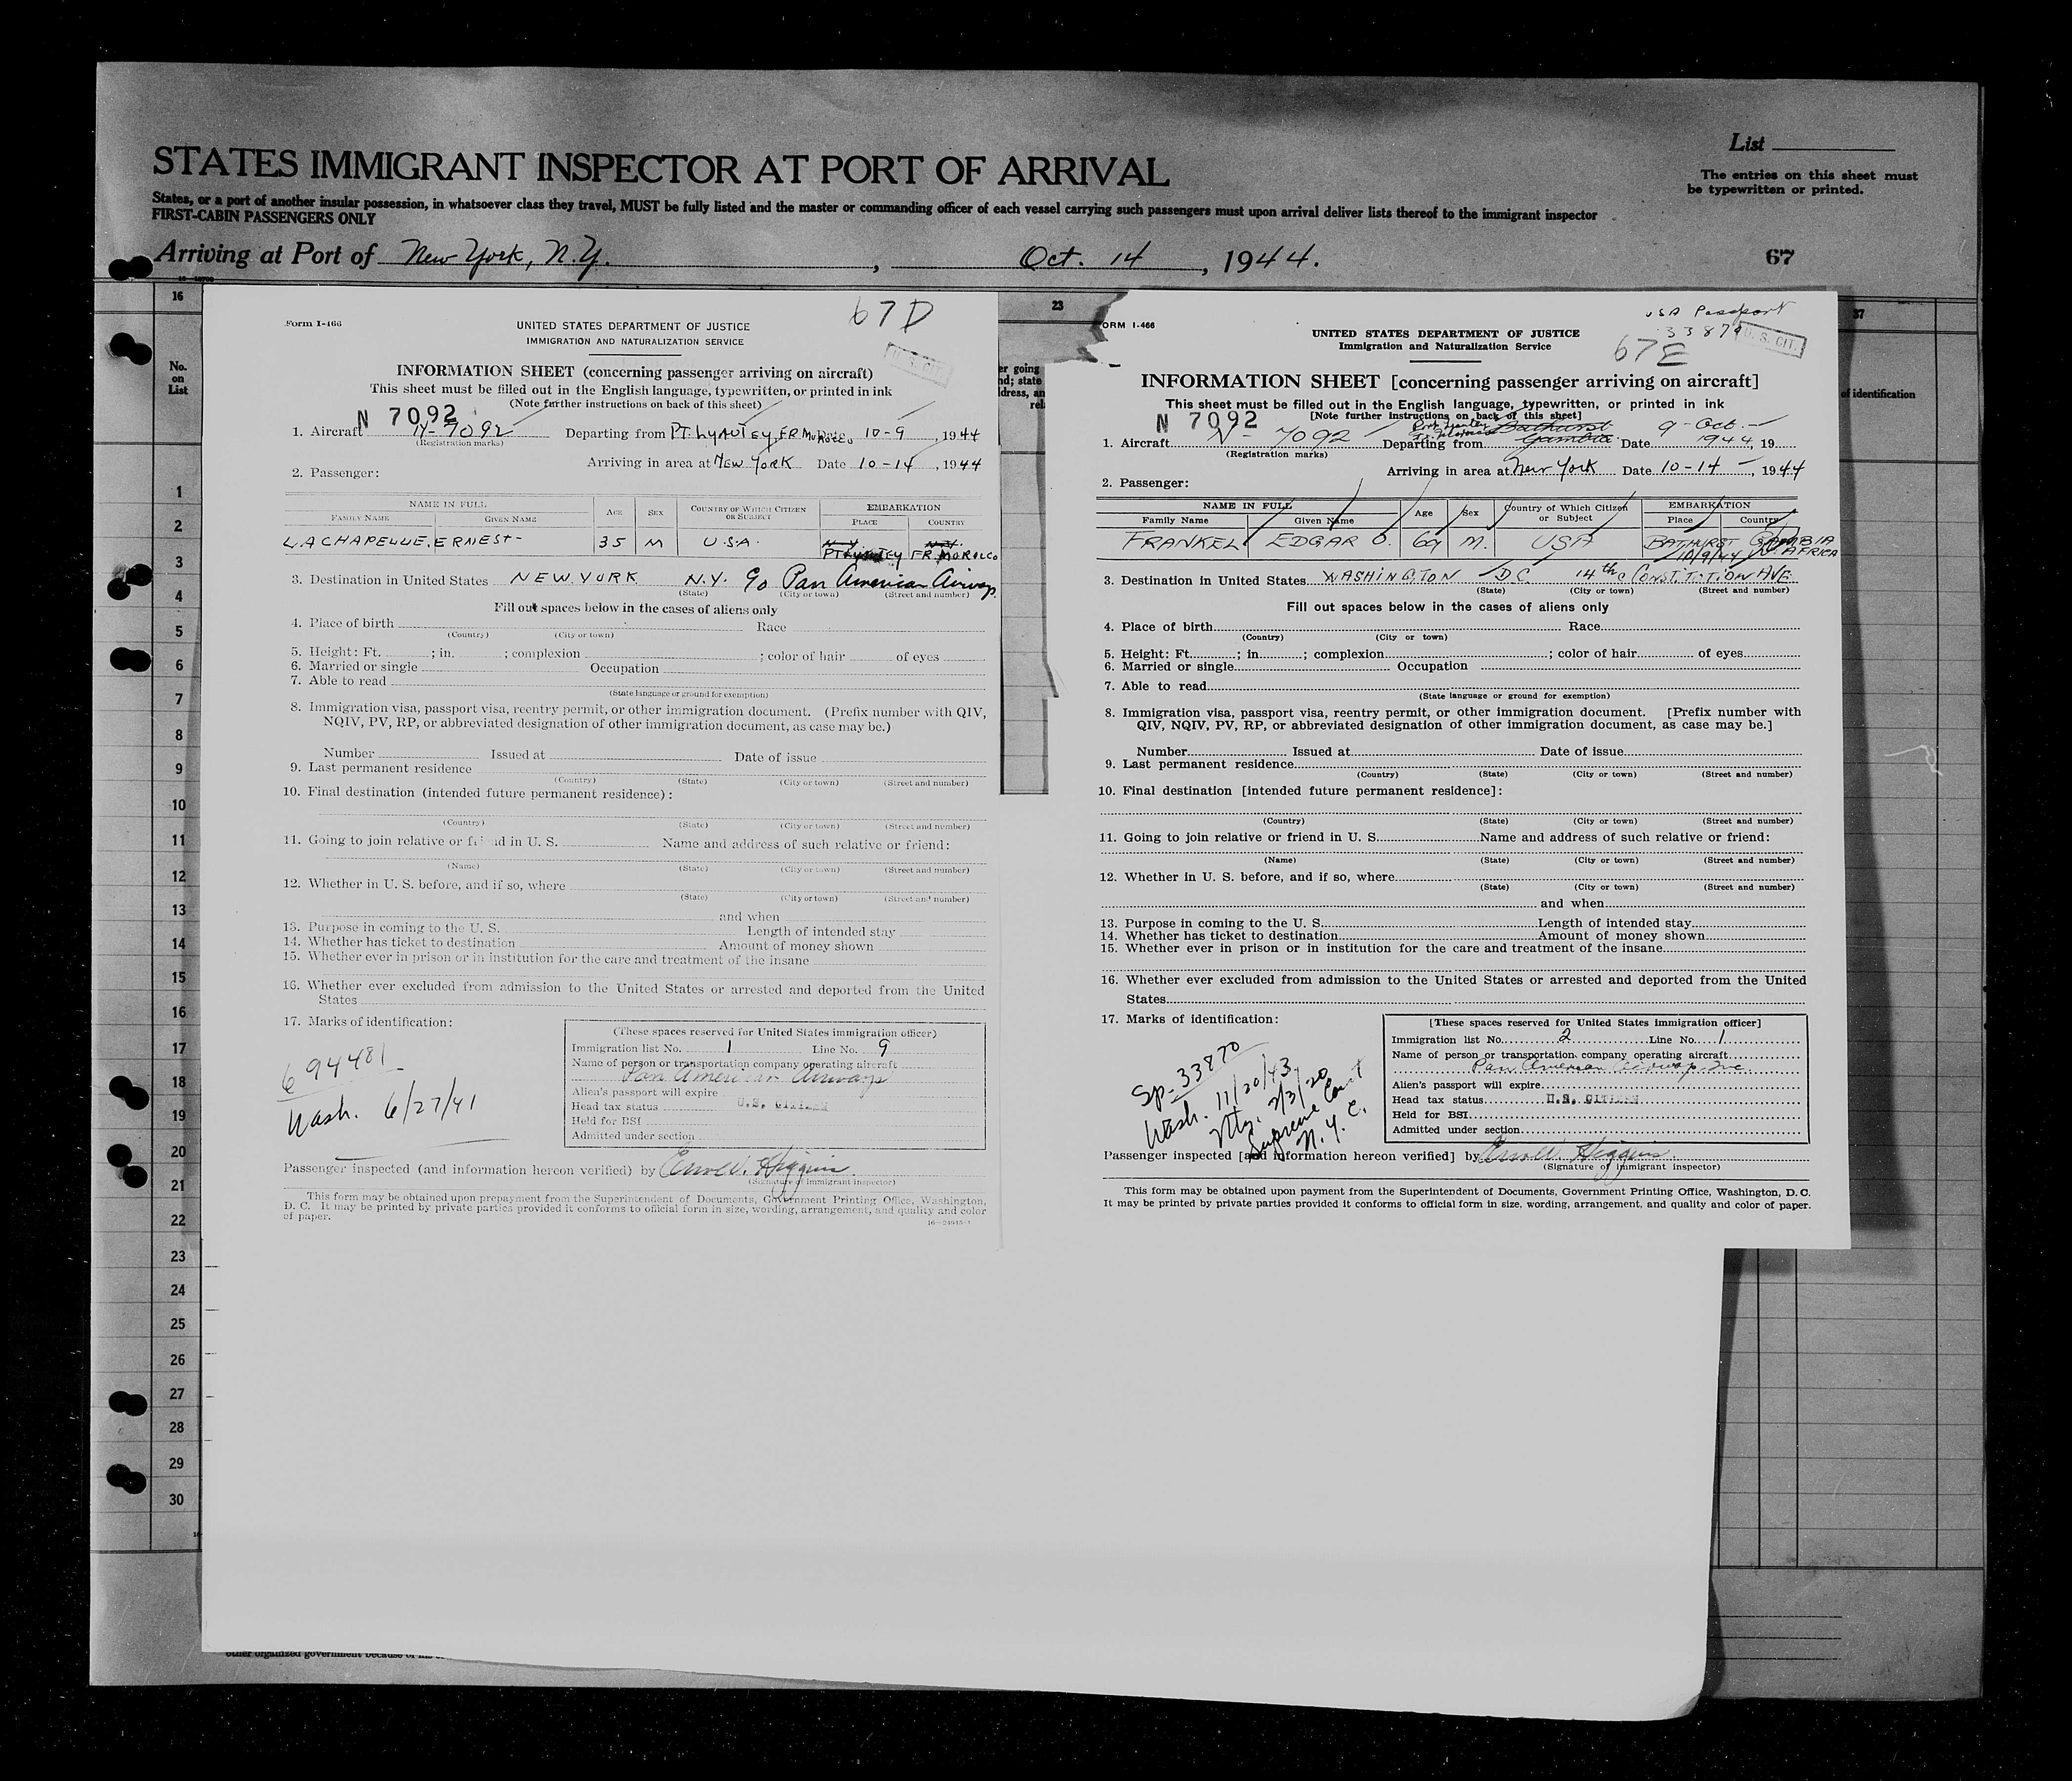 STATES IMMIGRANT INSPECTOR AT PORT OF ARRIVAL
List
The entries on this sheet must
be typewritten or printed.
States, or a port of another insular possession, in whatsoever class they travel, MUST be fully listed and the master or commanding officer of each vessel carrying such passengers must upon arrival deliver lists thereof to the immigrant inspector
FIRST-CABIN PASSENGERS ONLY
Arriving at Port of New York, N.Y., Oct. 14, 1944.
67
16
23
37
No.
on
List
of identification
1
2
3
4
5
6
7
8
9
10
11
12
13
14
15
16
17
18
19
20
21
22
23
24
25
26
27
28
29
30
67D
Form I-466
UNITED STATES DEPARTMENT OF JUSTICE
IMMIGRATION AND NATURALIZATION SERVICE
U.S. CIT.
INFORMATION SHEET (concerning passenger arriving on aircraft)
This sheet must be filled out in the English language, typewritten, or printed in ink
(Note further instructions on back of this sheet)
N 7092
1. Aircraft N-7092 Departing from PT. LYAUTEY, FR. MOROCCO Date 10-9, 1944
(Registration marks)
Arriving in area at NEW YORK Date 10-14, 1944
2. Passenger:
NAME IN FULL AGE SEX COUNTRY OF WHICH CITIZEN OR SUBJECT EMBARKATION
FAMILY NAME GIVEN NAME PLACE COUNTRY
LACHAPELLE, ERNEST- 35 M U.S.A. N.Y. N.Y.
PT LYAUTEY FR. MOROCCO
3. Destination in United States NEW YORK N.Y. c/o Pan American Airways
(State) (City or town) (Street and number)
Fill out spaces below in the cases of aliens only
4. Place of birth Race
(Country) (City or town)
5. Height: Ft. ; in. ; complexion ; color of hair of eyes
6. Married or single Occupation
7. Able to read
(State language or ground for exemption)
8. Immigration visa, passport visa, reentry permit, or other immigration document. (Prefix number with QIV,
NQIV, PV, RP, or abbreviated designation of other immigration document, as case may be.)
Number Issued at Date of issue
9. Last permanent residence
(Country) (State) (City or town) (Street and number)
10. Final destination (intended future permanent residence):
(Country) (State) (City or town) (Street and number)
11. Going to join relative or friend in U. S. Name and address of such relative or friend:
(Name) (State) (City or town) (Street and number)
12. Whether in U. S. before, and if so, where
(State) (City or town) (Street and number)
and when
13. Purpose in coming to the U. S. Length of intended stay
14. Whether has ticket to destination Amount of money shown
15. Whether ever in prison or in institution for the care and treatment of the insane
16. Whether ever excluded from admission to the United States or arrested and deported from the United
States
17. Marks of identification:
694481
Wash. 6/27/41
(These spaces reserved for United States immigration officer)
Immigration list No. 1 Line No. 9
Name of person or transportation company operating aircraft
Pan American Airways
Alien's passport will expire
Head tax status U.S. CITIZEN
Held for BSI
Admitted under section
Passenger inspected (and information hereon verified) by Errol W. Higgins
(Signature of immigrant inspector)
This form may be obtained upon prepayment from the Superintendent of Documents, Government Printing Office, Washington,
D. C. It may be printed by private parties provided it conforms to official form in size, wording, arrangement, and quality and color
of paper.
16-24915-1
USA Passport
33870
67E
U.S. CIT.
FORM I-466
UNITED STATES DEPARTMENT OF JUSTICE
Immigration and Naturalization Service
INFORMATION SHEET [concerning passenger arriving on aircraft]
This sheet must be filled out in the English language, typewritten, or printed in ink
[Note further instructions on back of this sheet]
N 7092
1. Aircraft N-7092 Departing from Bathurst Gambia Date 9-Oct.- 1944, 19
(Registration marks)
Arriving in area at New York Date 10-14, 1944
2. Passenger:
NAME IN FULL Age Sex Country of Which Citizen or Subject EMBARKATION
Family Name Given Name Place Country
FRANKEL EDGAR O. 69 M. USA BATHURST GAMBIA
10/9/44 W. AFRICA
3. Destination in United States WASHINGTON D C 14th & CONSTITUTION AVE.
(State) (City or town) (Street and number)
Fill out spaces below in the cases of aliens only
4. Place of birth Race
(Country) (City or town)
5. Height: Ft. ; in. ; complexion ; color of hair of eyes
6. Married or single Occupation
7. Able to read
(State language or ground for exemption)
8. Immigration visa, passport visa, reentry permit, or other immigration document. [Prefix number with
QIV, NQIV, PV, RP, or abbreviated designation of other immigration document, as case may be.]
Number Issued at Date of issue
9. Last permanent residence
(Country) (State) (City or town) (Street and number)
10. Final destination [intended future permanent residence]:
(Country) (State) (City or town) (Street and number)
11. Going to join relative or friend in U. S. Name and address of such relative or friend:
(Name) (State) (City or town) (Street and number)
12. Whether in U. S. before, and if so, where
(State) (City or town) (Street and number)
and when
13. Purpose in coming to the U. S. Length of intended stay
14. Whether has ticket to destination Amount of money shown
15. Whether ever in prison or in institution for the care and treatment of the insane
16. Whether ever excluded from admission to the United States or arrested and deported from the United
States
17. Marks of identification:
Sp-33870
Wash. 11/20/43
Ntz. 2/3/20
Supreme Court
N.Y.C.
[These spaces reserved for United States immigration officer]
Immigration list No. 2 Line No. 1
Name of person or transportation company operating aircraft
Pan American Airways Inc
Alien's passport will expire
Head tax status U.S. CITIZEN
Held for BSI
Admitted under section
Passenger inspected [and information hereon verified] by Errol W. Higgins
(Signature of immigrant inspector)
This form may be obtained upon payment from the Superintendent of Documents, Government Printing Office, Washington, D. C.
It may be printed by private parties provided it conforms to official form in size, wording, arrangement, and quality and color of paper.
other organized government because of his